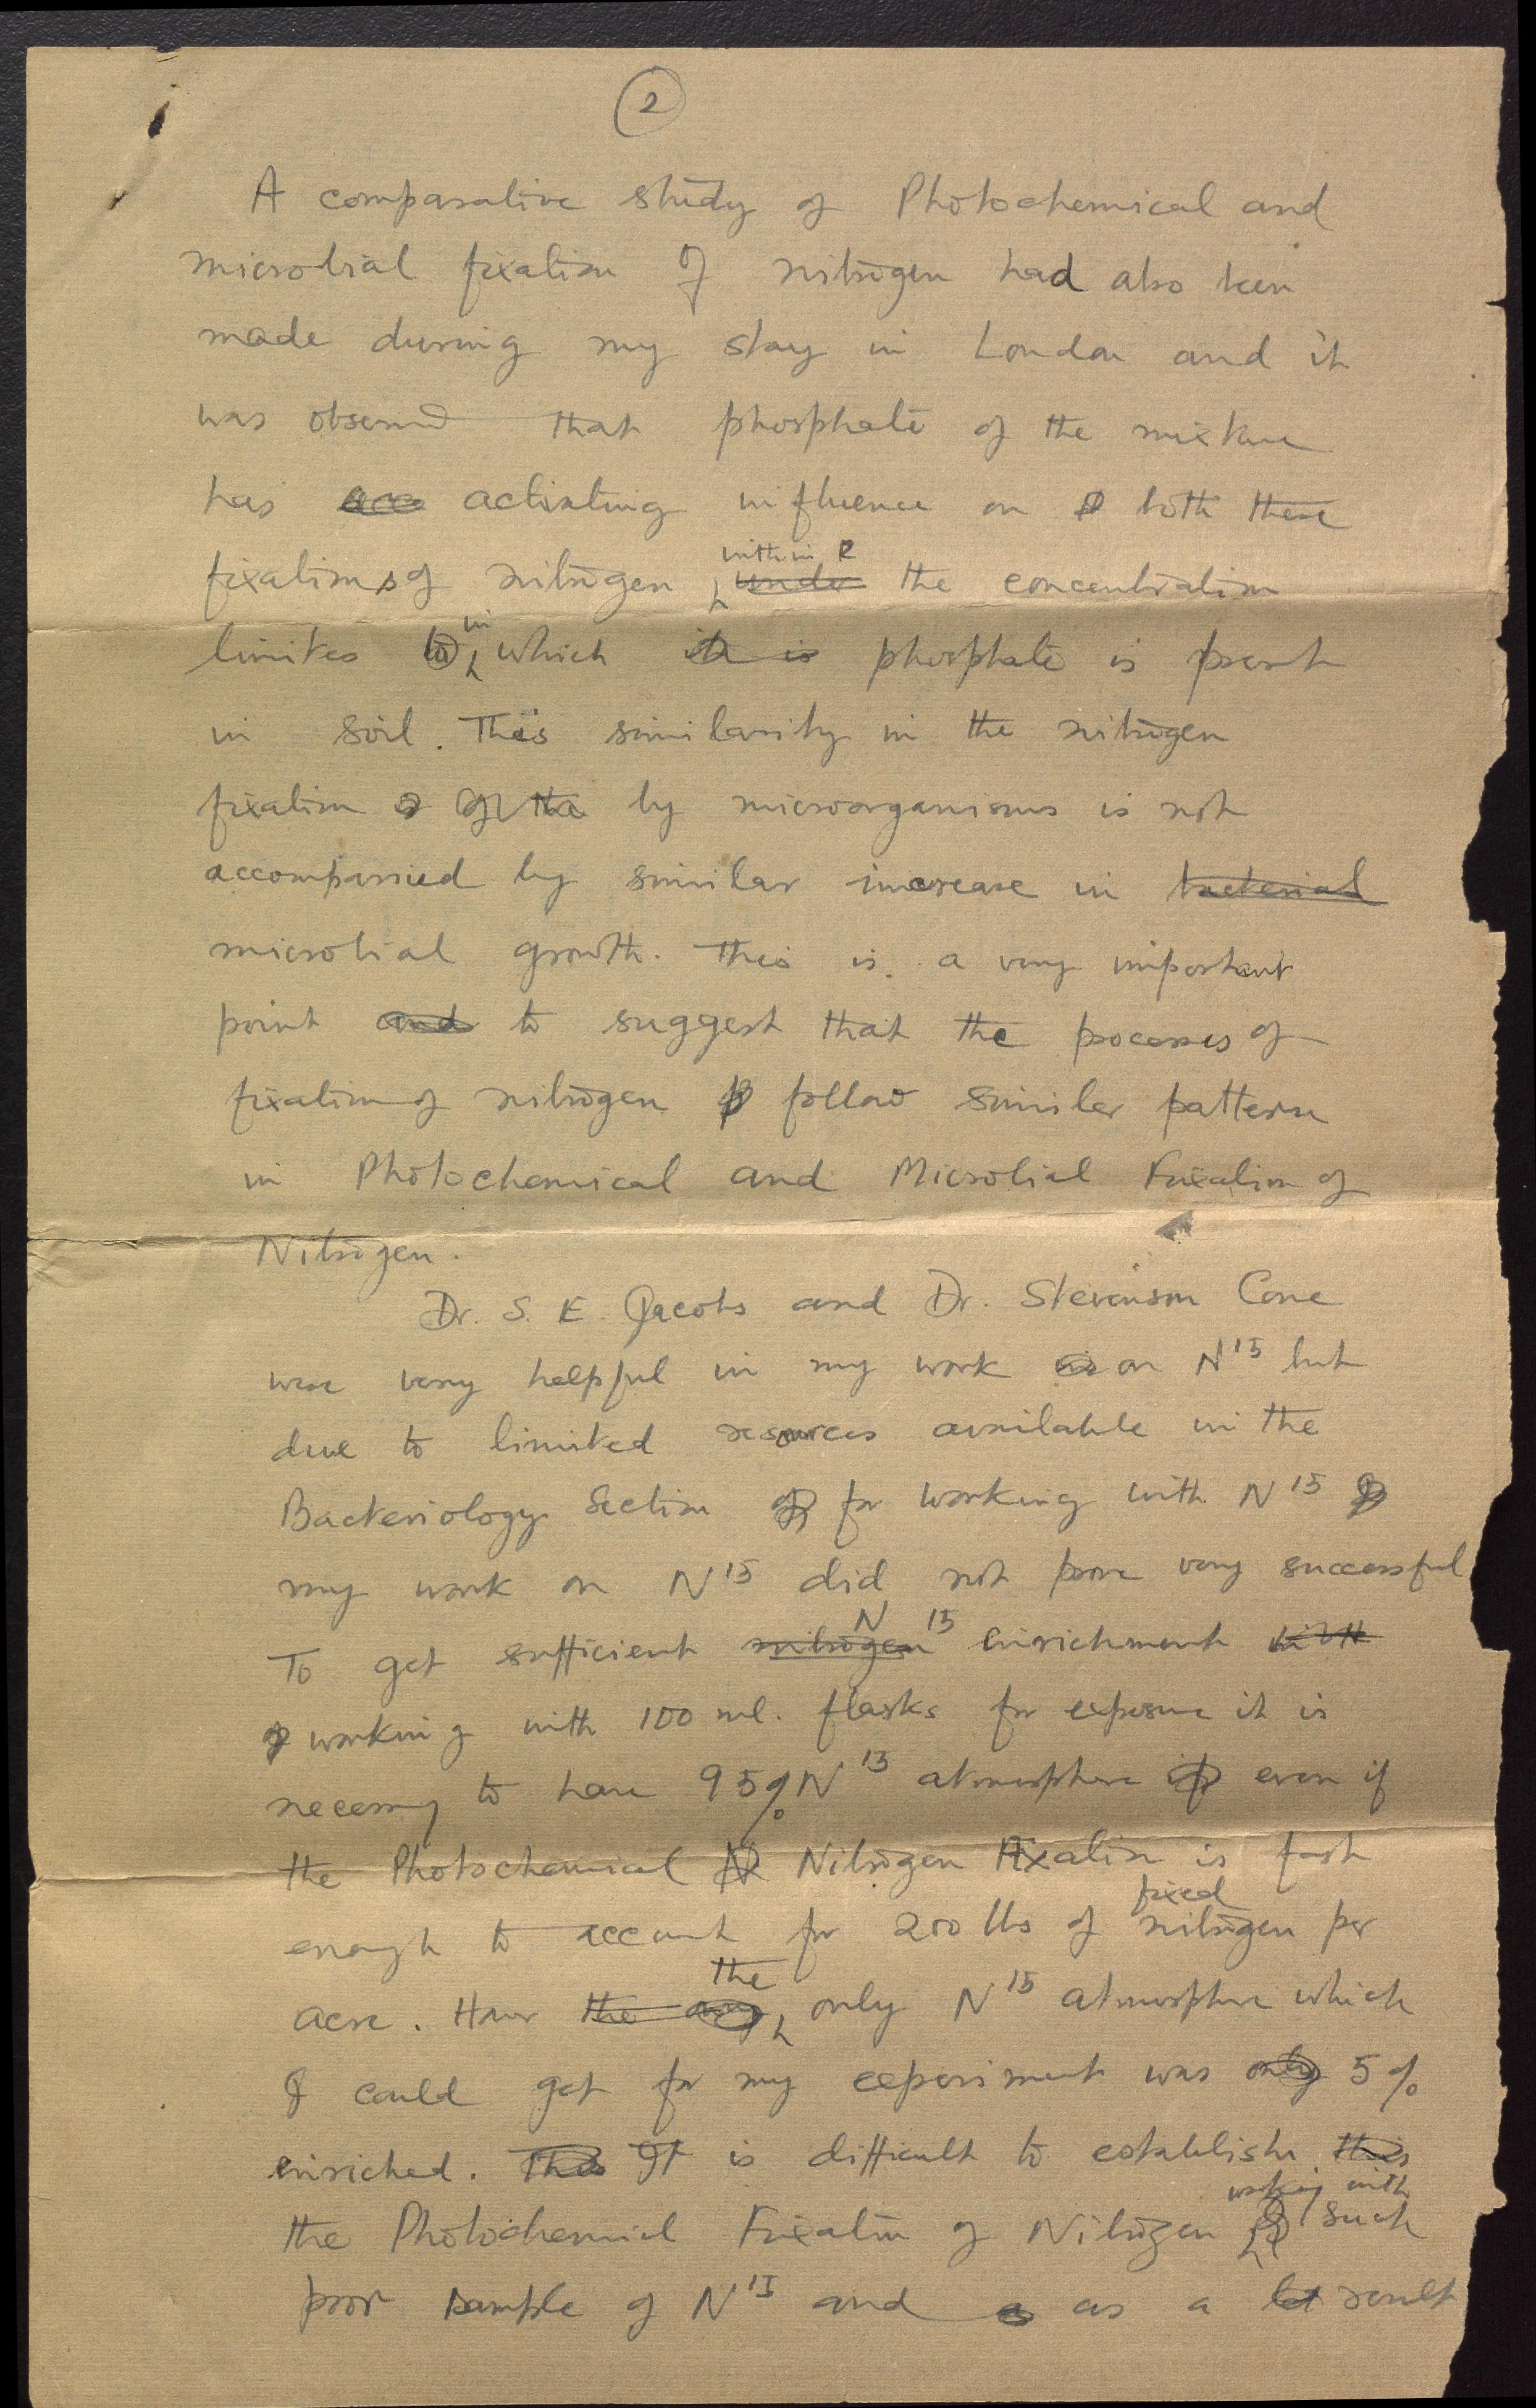 2
A comparative study of Photochemical and
microbial fixation of nitrogen had also been
made during my stay in London and it
was observed that phosphate of the mixture
has activating influence on both these
fixations of nitrogen within the concentration
limites in which phosphate is present
in soil. This similarity in the nitrogen
fixation by microorganisms is not
accompanied by similar increase in bacterial
microbial growth. This is a very important
point and to suggest that the processes of
fixation of nitrogen follow similar pattern
in Photochemical and Microbial Fixation of
Nitrogen.
Dr. S. E. Jacobs and Dr. Stevenson
were very helpful in my work on N15 but
due to limited resources available in the
Bacteriology Section for working with N15
my work on N15 did not prove very successful
To get sufficient nitrogen N15 enrichment with
working with 100 ml. flasks for exposure it is
necessary to have 95% N15 atmosphere even if
the Photochemical Nitrogen Fixation is fast
enough to account for 200 lbs of fixed nitrogen per
acre. the the only N15 atmosphere which
I could get for my experiment was only 5%
enriched. This It is difficult to establish this
the Photochemical Fixation of Nitrogen working with such
poor sample of N15 and as a result